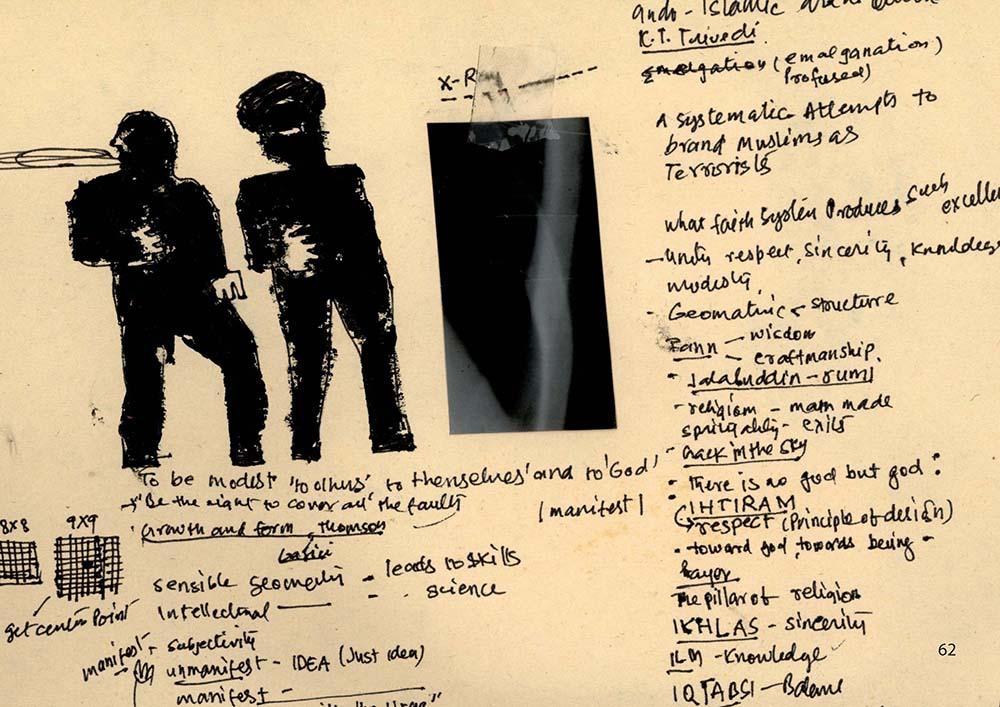 Indo - Islamic
K.T. Trivedi
(emalganation)
Profused)
A Systematic Attempts to
brand Muslims as
Terrorists
what faith System Produces such
excellen
- Unity respect, sincerity, Knowledge
modesty,
- Geomatric - structure
Fann - wisdom
- craftmanship.
- Jalaluddin - rumi
- religion - man made
- exits
- crack in the sky
- There is no god but god :
- IHTIRAM
respect (Principle of design)
- toward god, towards being -
hayo
The pillar of religion
IKHLAS - sincerity
ILM - Knowledge
IQTABSI - Balance
X-R
To be modest 'to others' to themselves' and to 'God'
→ 'Be the night to cover all' the faults
|manifest|
Growth and form, Thomson
8x8
9x9
get center Point
sensible geometry - leads to skills
- science
Intellectual
manifest - subjectivity
unmanifest - IDEA (Just idea)
manifest -
62